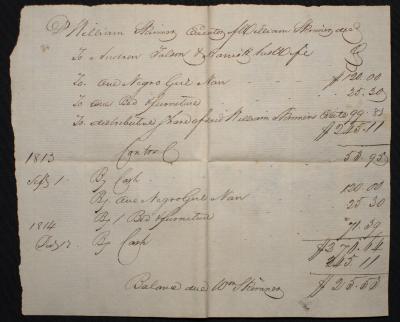 Dr William Skinner Executor of William Skinner decd
To Andrew &
To One Negro Girl Nan $120.00
To One Bed & furniture 25.30
To distributive Share of said William Skinners Estate 99.81
$245.11
Contra Cr
1813
Sept 1 By Cash 53.95
By One Negro Girl Nan 120.00
By 1 Bed & furniture 25.30
1814
By Cash 71.39
$270.64
245.11
Balance due Wm Skinner $25.53